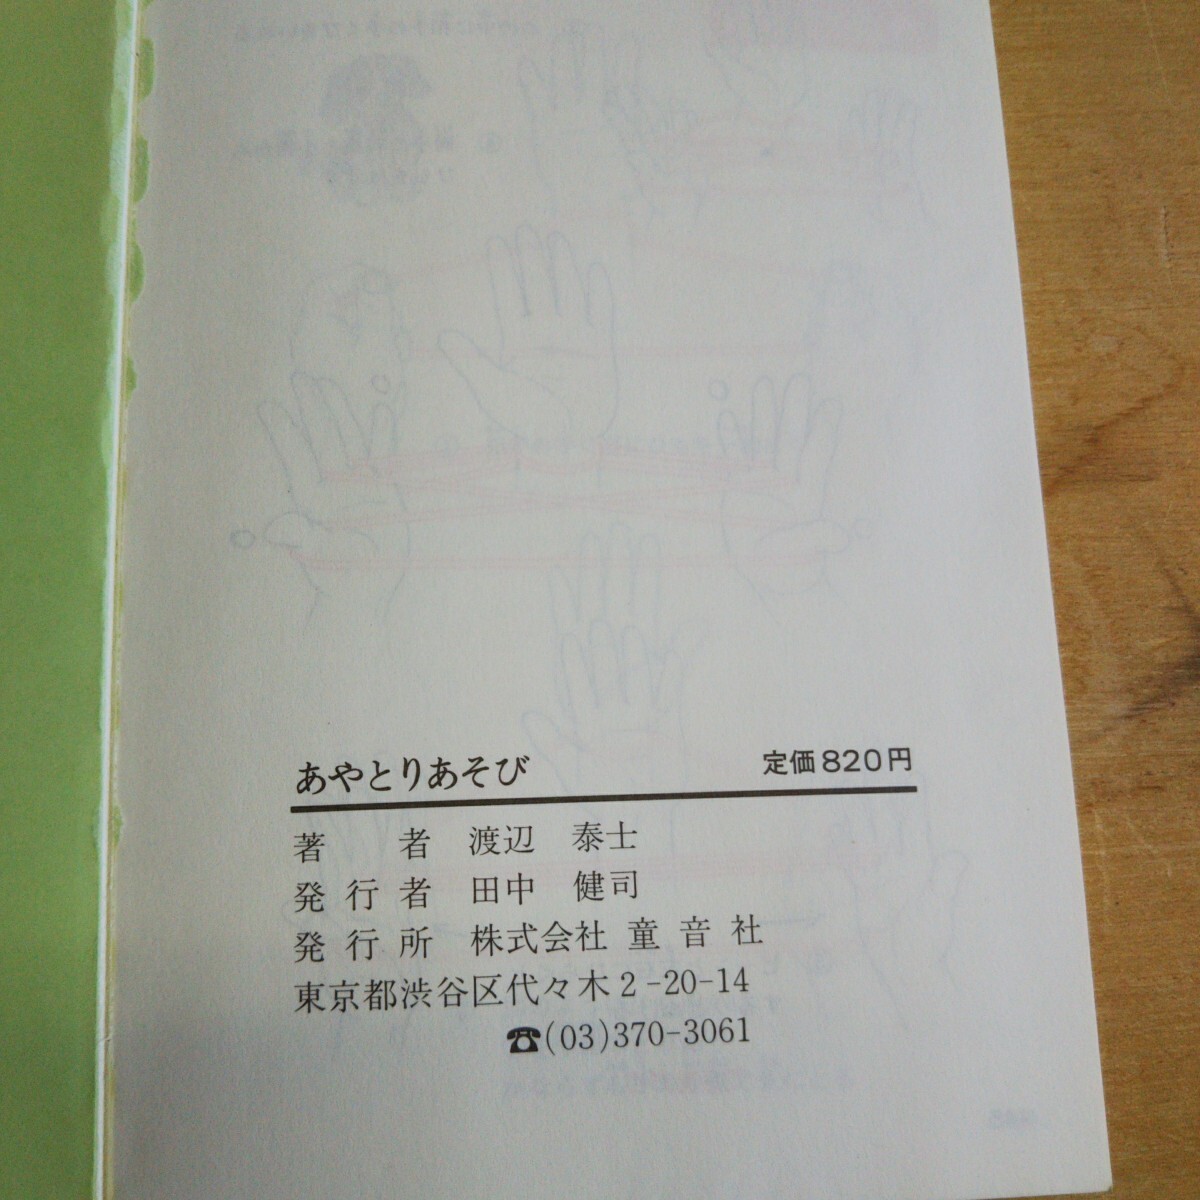 あやとりあそび 定価820円
著者 渡辺 泰士
発行者 田中 健司
発行所 株式会社 童音社
東京都渋谷区代々木2-20-14
☎(03)370-3061